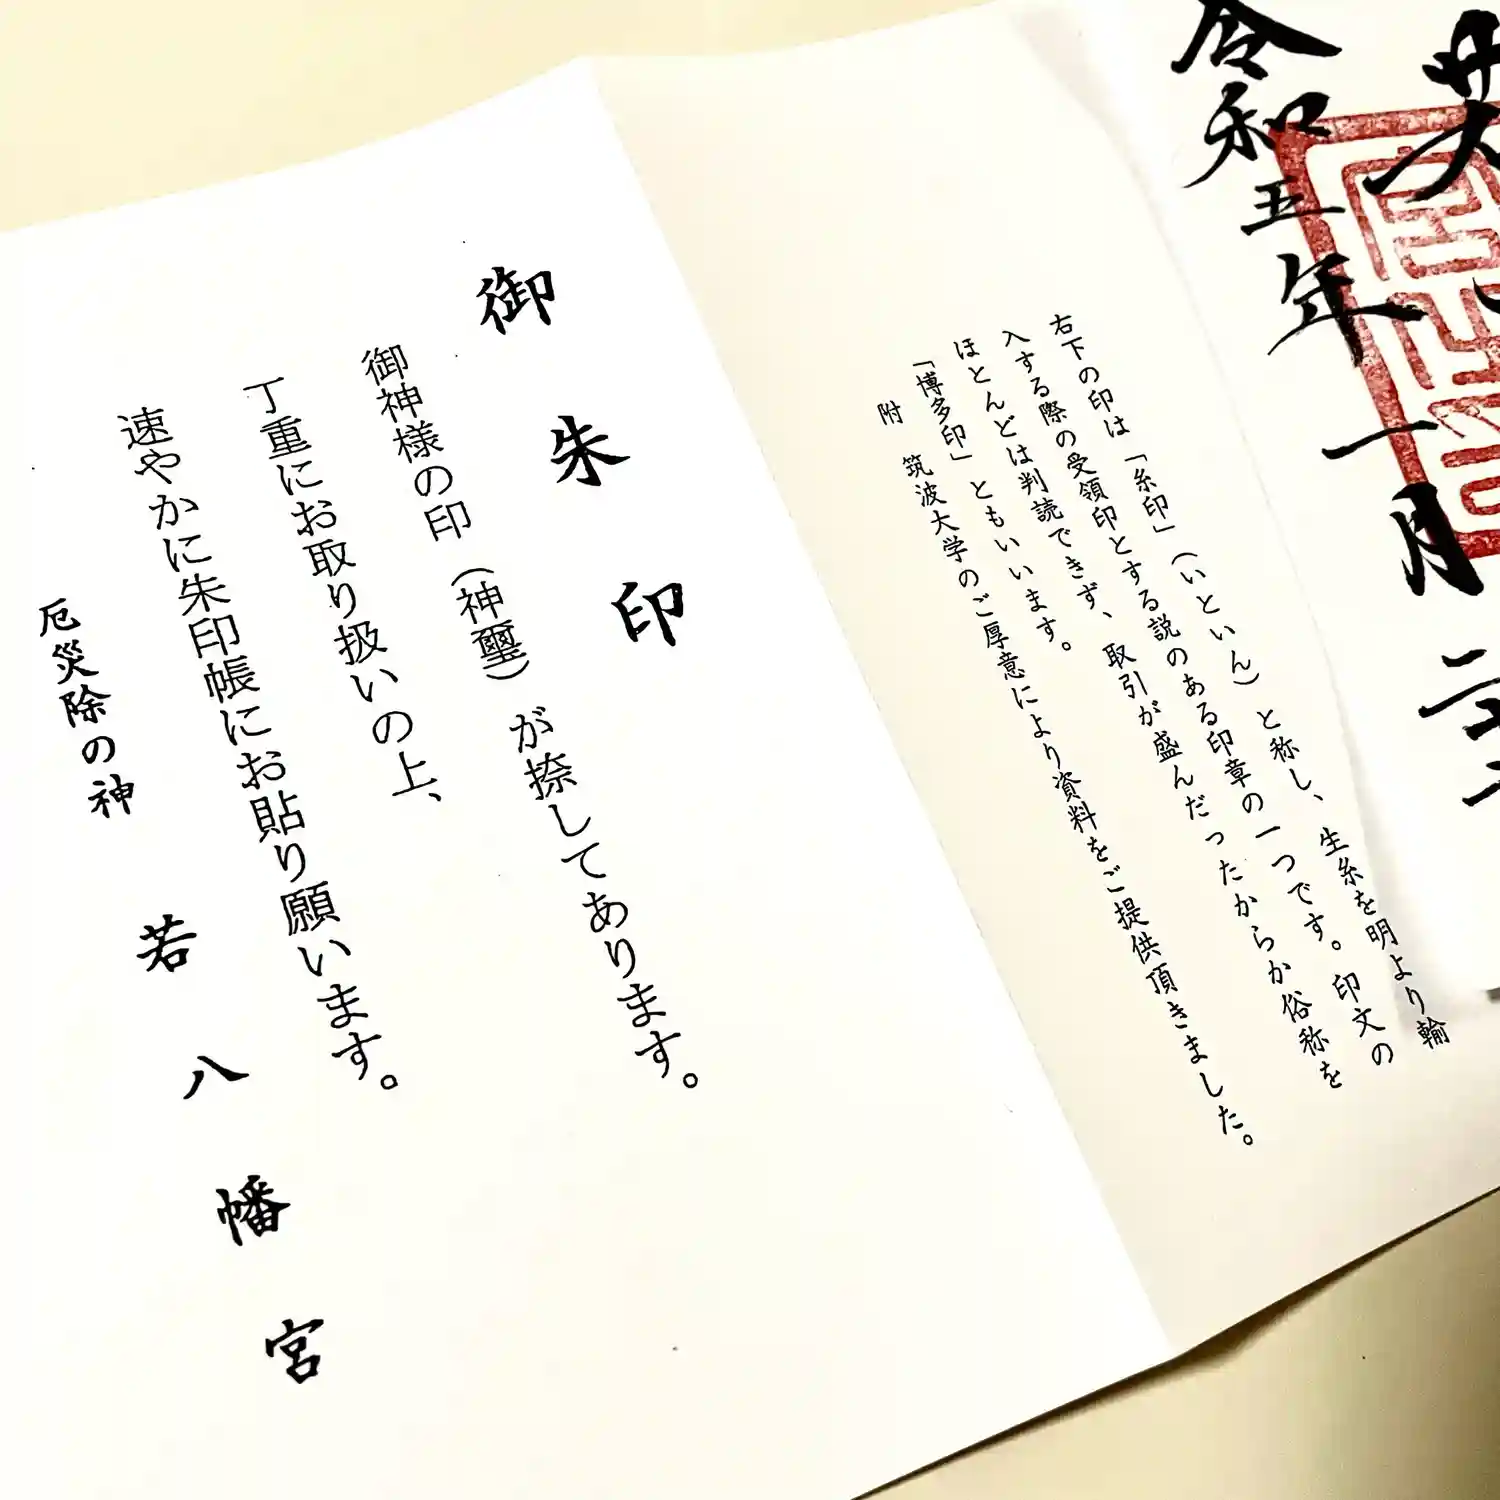 令和五年一月二十
右下の印は「糸印」(いといん)と称し、生糸を明より輸
入する際の受領印とする説のある印章の一つです。印文の
ほとんどは判読できず、取引が盛んだったからか俗称を
「博多印」ともいいます。
附 筑波大学のご厚意により資料をご提供頂きました。
御朱印
御神様の印(神璽)が捺してあります。
丁重にお取り扱いの上、
速やかに朱印帳にお貼り願います。
厄災除の神 若八幡宮